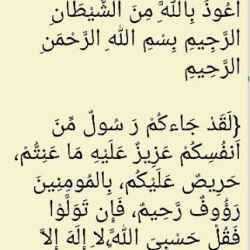 أعُوذُ بِاللَّهِ مِنَ الشَّيْطَانِ
الرَّجِيمِ بِسْمِ اللهِ الرَّحْمَنِ
الرَّحِيمِ
{لَقَدْ جَاءكُمْ رَ سُولٌ مِّنَ
اَنفُسِكُمْ عَزِيزٌ عَلَيْهِ مَا عَنِتُّمْ،
حَرِيصٌ عَلَيْكُم، بِالمُومِنِينَ
رَؤُوفٌ رَحِيمٌ، فَإِن تَوَلَّوْا
فَقُلْ حَسْبِيَ اللهُ،لا إِلَهَ إِلاَّ